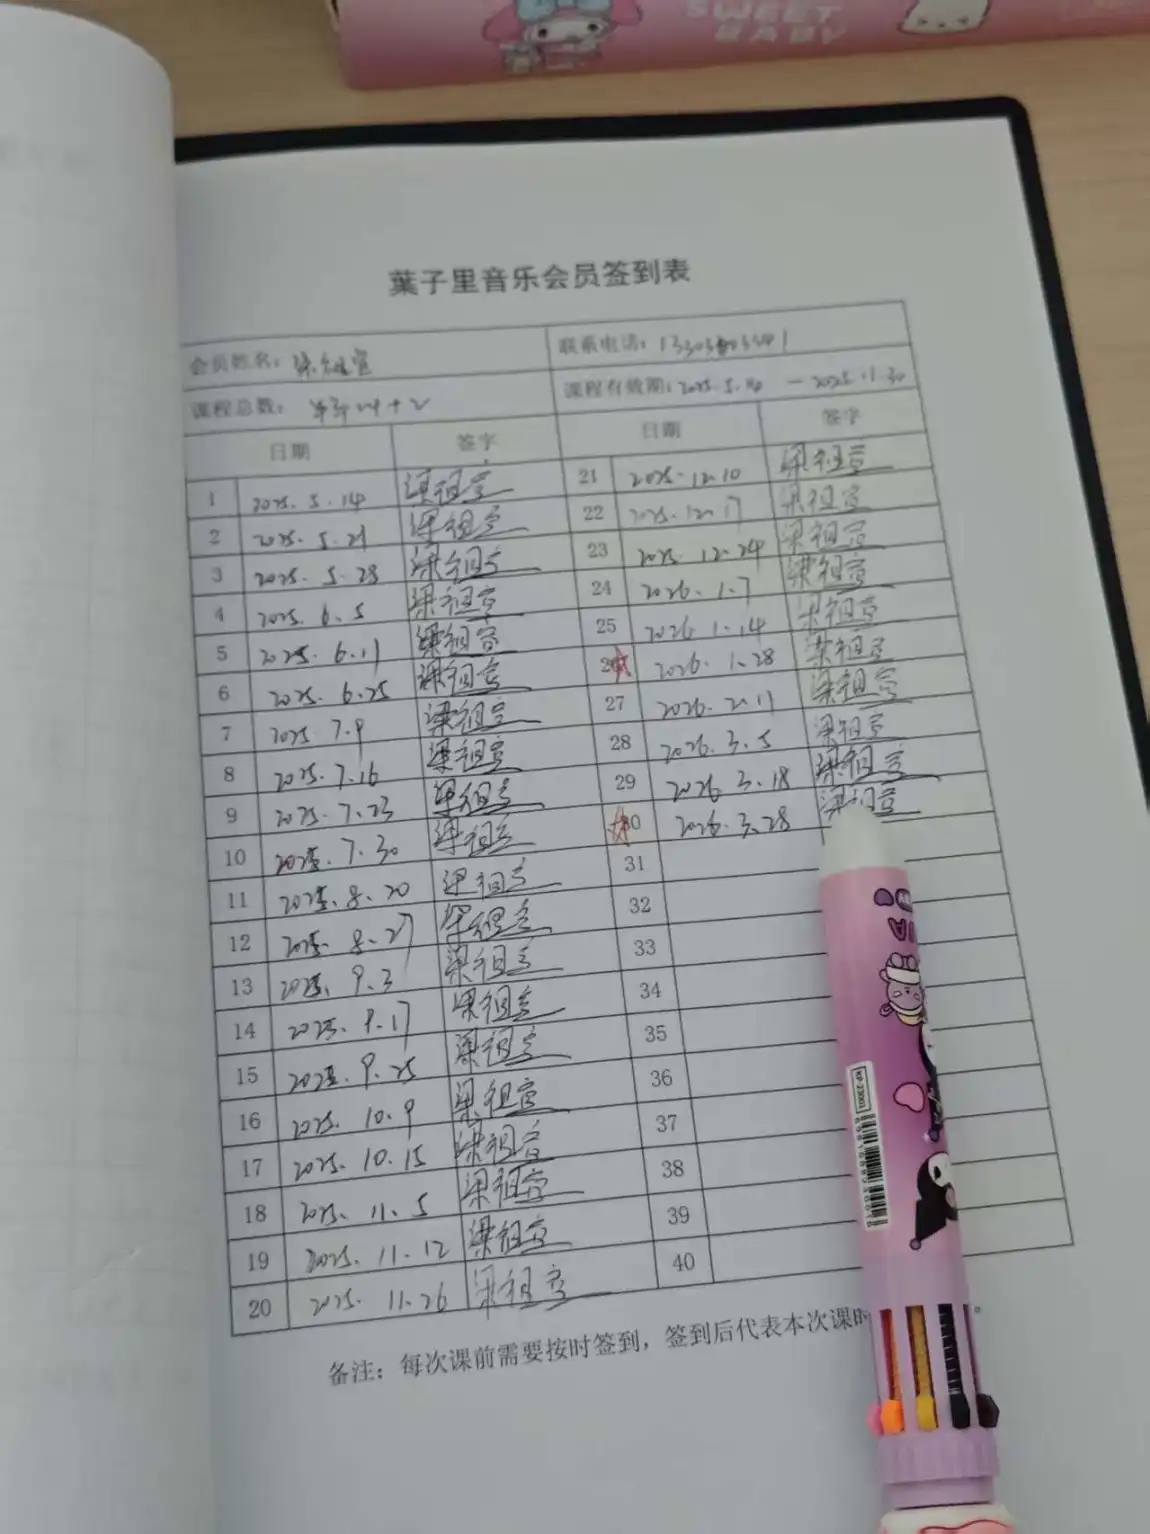 SWEET
BABY
葉子里音乐会员签到表
会员姓名: 梁祖萱 联系电话:
课程总数: 课程有效期: 2025.5.14 — 2025.11.30
日期 签字 日期 签字
1 2025.5.14 梁祖萱 21 2025.12.10 梁祖萱
2 2025.5.21 梁祖萱 22 2025.12.17 梁祖萱
3 2025.5.28 梁祖萱 23 2025.12.24 梁祖萱
4 2025.6.5 梁祖萱 24 2026.1.7 梁祖萱
5 2025.6.11 梁祖萱 25 2026.1.14 梁祖萱
6 2025.6.25 梁祖萱 26 2026.1.28 梁祖萱
7 2025.7.9 梁祖萱 27 2026.2.11 梁祖萱
8 2025.7.16 梁祖萱 28 2026.3.5 梁祖萱
9 2025.7.23 梁祖萱 29 2026.3.18 梁祖萱
10 2025.7.30 梁祖萱 30 2026.3.28 梁祖萱
11 2025.8.20 梁祖萱 31
12 2025.8.27 梁祖萱 32
13 2025.9.3 梁祖萱 33
14 2025.9.17 梁祖萱 34
15 2025.9.25 梁祖萱 35
16 2025.10.9 梁祖萱 36
17 2025.10.15 梁祖萱 37
18 2025.11.5 梁祖萱 38
19 2025.11.12 梁祖萱 39
20 2025.11.26 梁祖萱 40
备注: 每次课前需要按时签到, 签到后代表本次课时
KP-23001